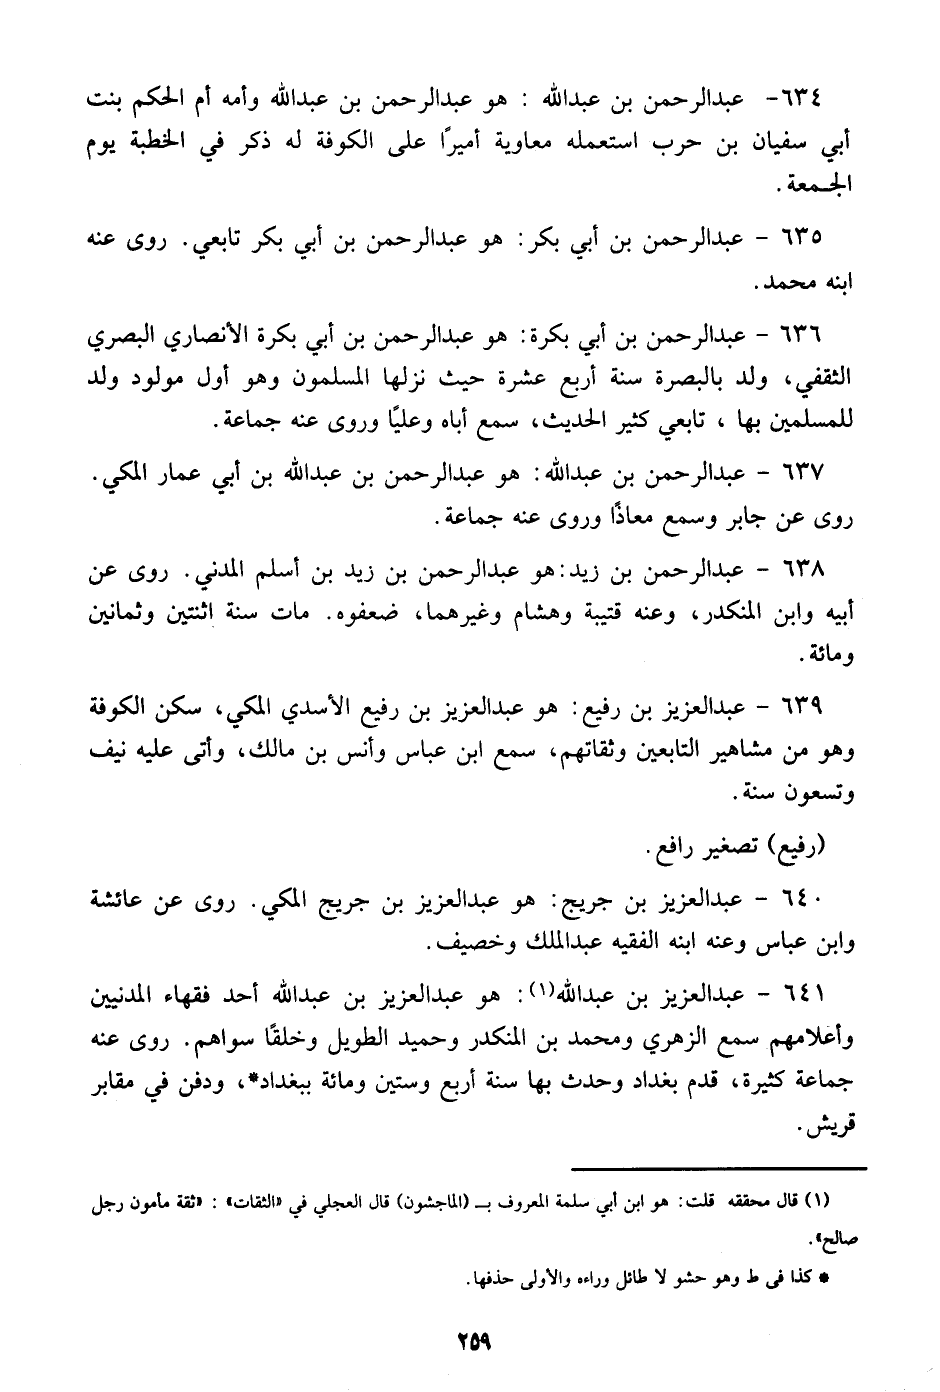 ٦٣٤- عبدالرحمن بن عبدالله : هو عبدالرحمن بن عبدالله وأمه أم الحكم بنت
أبي سفيان بن حرب استعمله معاوية أميرًا على الكوفة له ذكر في الخطبة يوم
الجـمعة .
٦٣٥ - عبدالرحمن بن أبي بكر: هو عبدالرحمن بن أبي بكر تابعي. روى عنه
ابنه محمد.
٦٣٦ - عبدالرحمن بن أبي بكرة: هو عبدالرحمن بن أبي بكرة الأنصاري البصري
الثقفي، ولد بالبصرة سنة أربع عشرة حيث نزلها المسلمون وهو أول مولود ولد
للمسلمين بها ، تابعي كثير الحديث، سمع أباه وعليًا وروى عنه جماعة.
٦٣٧ - عبدالرحمن بن عبدالله: هو عبدالرحمن بن عبدالله بن أبي عمار المكي.
روى عن جابر وسمع معاذًا وروى عنه جماعة.
٦٣٨ - عبدالرحمن بن زيد:هو عبدالرحمن بن زيد بن أسلم المدني. روى عن
أبيه وابن المنكدر، وعنه قتيبة وهشام وغيرهما، ضعفوه. مات سنة اثنتين وثمانين
ومائة.
٦٣٩ - عبدالعزيز بن رفيع: هو عبدالعزيز بن رفيع الأسدي المكي، سكن الكوفة
وهو من مشاهير التابعين وثقاتهم، سمع ابن عباس وأنس بن مالك، وأتى عليه نيف
وتسعون سنة.
(رفيع) تصغير رافع.
٦٤٠ - عبدالعزيز بن جريج: هو عبدالعزيز بن جريج المكي. روى عن عائشة
وابن عباس وعنه ابنه الفقيه عبدالملك وخصيف.
٦٤١ - عبدالعزيز بن عبدالله(١): هو عبدالعزيز بن عبدالله أحد فقهاء المدنيين
وأعلامهم سمع الزهري ومحمد بن المنكدر وحميد الطويل وخلقًا سواهم. روى عنه
جماعة كثيرة، قدم بغداد وحدث بها سنة أربع وستين ومائة ببغداد*، ودفن في مقابر
قريش.
(١) قال محققه قلت: هو ابن أبي سلمة المعروف بـ (الماجشون) قال العجلي في «الثقات» : «ثقة مأمون رجل
صالح».
* كذا في ط وهو حشو لا طائل وراءه والأولى حذفها.
٢٥٩